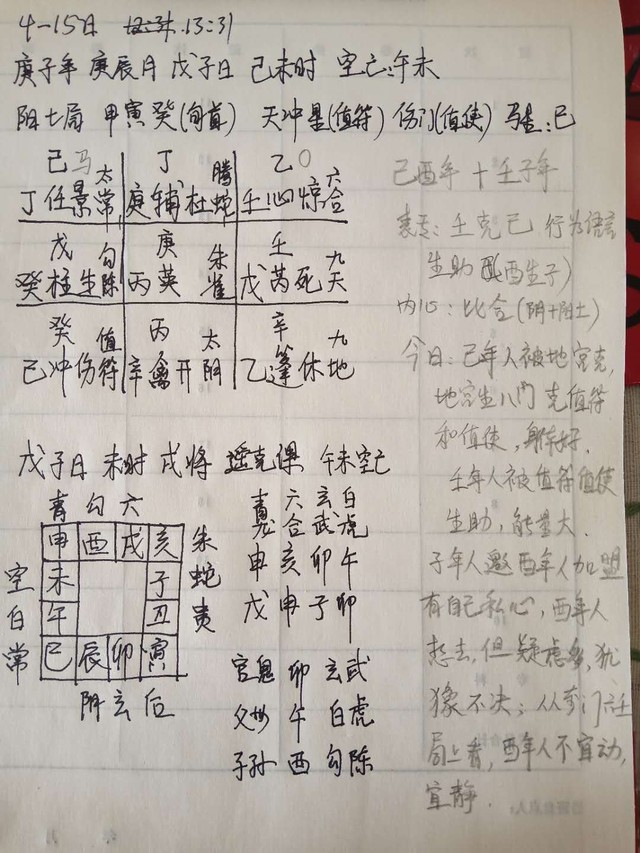 4-15日 13:31
庚子年 庚辰月 戊子日 己未时 空亡:午未
阳七局 甲寅癸(旬首) 天冲星(值符) 伤门(值使) 马星:巳
己马太 丁 腾 乙〇 六
丁任景常 庚辅杜蛇 壬心惊合
戊 勾 庚 朱 壬 九
癸柱生陈 丙英 雀 戊芮死天
癸 值 丙 太 辛 九
己冲伤符 辛禽开阴 乙蓬休地
己酉年 十壬子年
表意:壬克己 行为语言
生助 (酉生子)
内心:比合(阴+阳土)
今日:己年人被地宫克,
地宫生八门 克值符
和值使,
壬年人被值符值使
生助,能量大.
子年人邀酉年人加盟
有自己私心,酉年人
想去,但疑虑多,犹
豫不决;从奇门六壬
局上看,酉年人不宜动,
宜静.
戊子日 未时 戌将 课 午未空亡
青 勾 六
申 酉 戌 亥 朱
空 未 子 蛇
白 午 丑 贵
常 巳 辰 卯 寅
阴 玄 后
青龙 六合 玄武 白虎
申 亥 卯 午
戊 申 子 卯
官鬼 卯 玄武
父母 午 白虎
子孙 酉 勾陈